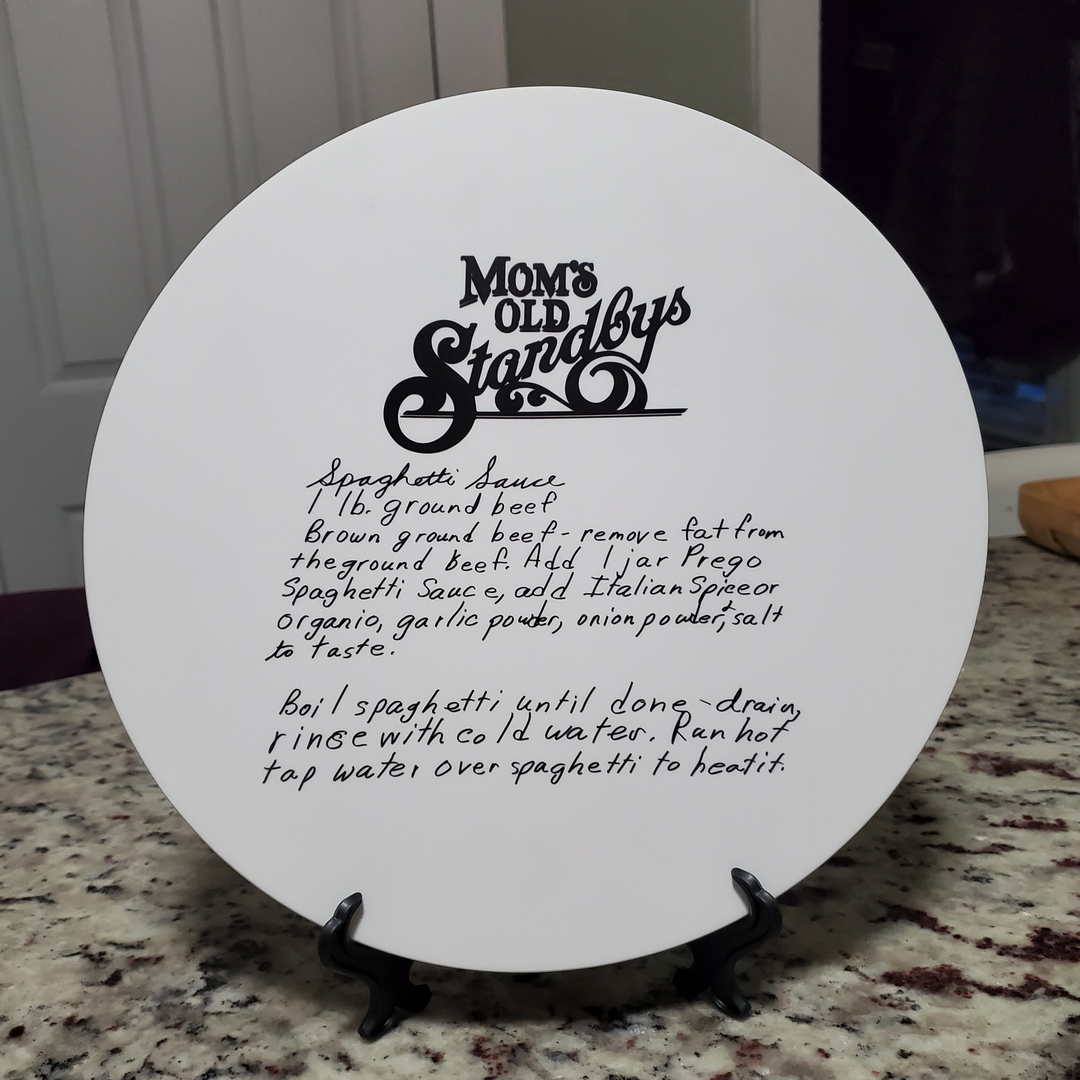 MOM'S
OLD
Standbys
Spaghetti Sauce
1 lb. ground beef
Brown ground beef - remove fat from
the ground beef. Add 1 jar Prego
Spaghetti Sauce, add Italian Spice or
Organio, garlic powder, onion powder, & salt
to taste.
Boil spaghetti until done - drain,
rinse with cold water. Ran hot
tap water over spaghetti to heat it.